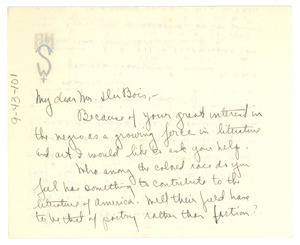 9-43-101
My dear Mr. Du Bois,-
Because of your great interest in
the negro as a growing force in literature
and art I would like to ask your help.
Who among the colored race do you
feel has something to contribute to the
literature of America. Will their field have
to be that of poetry rather than fiction?